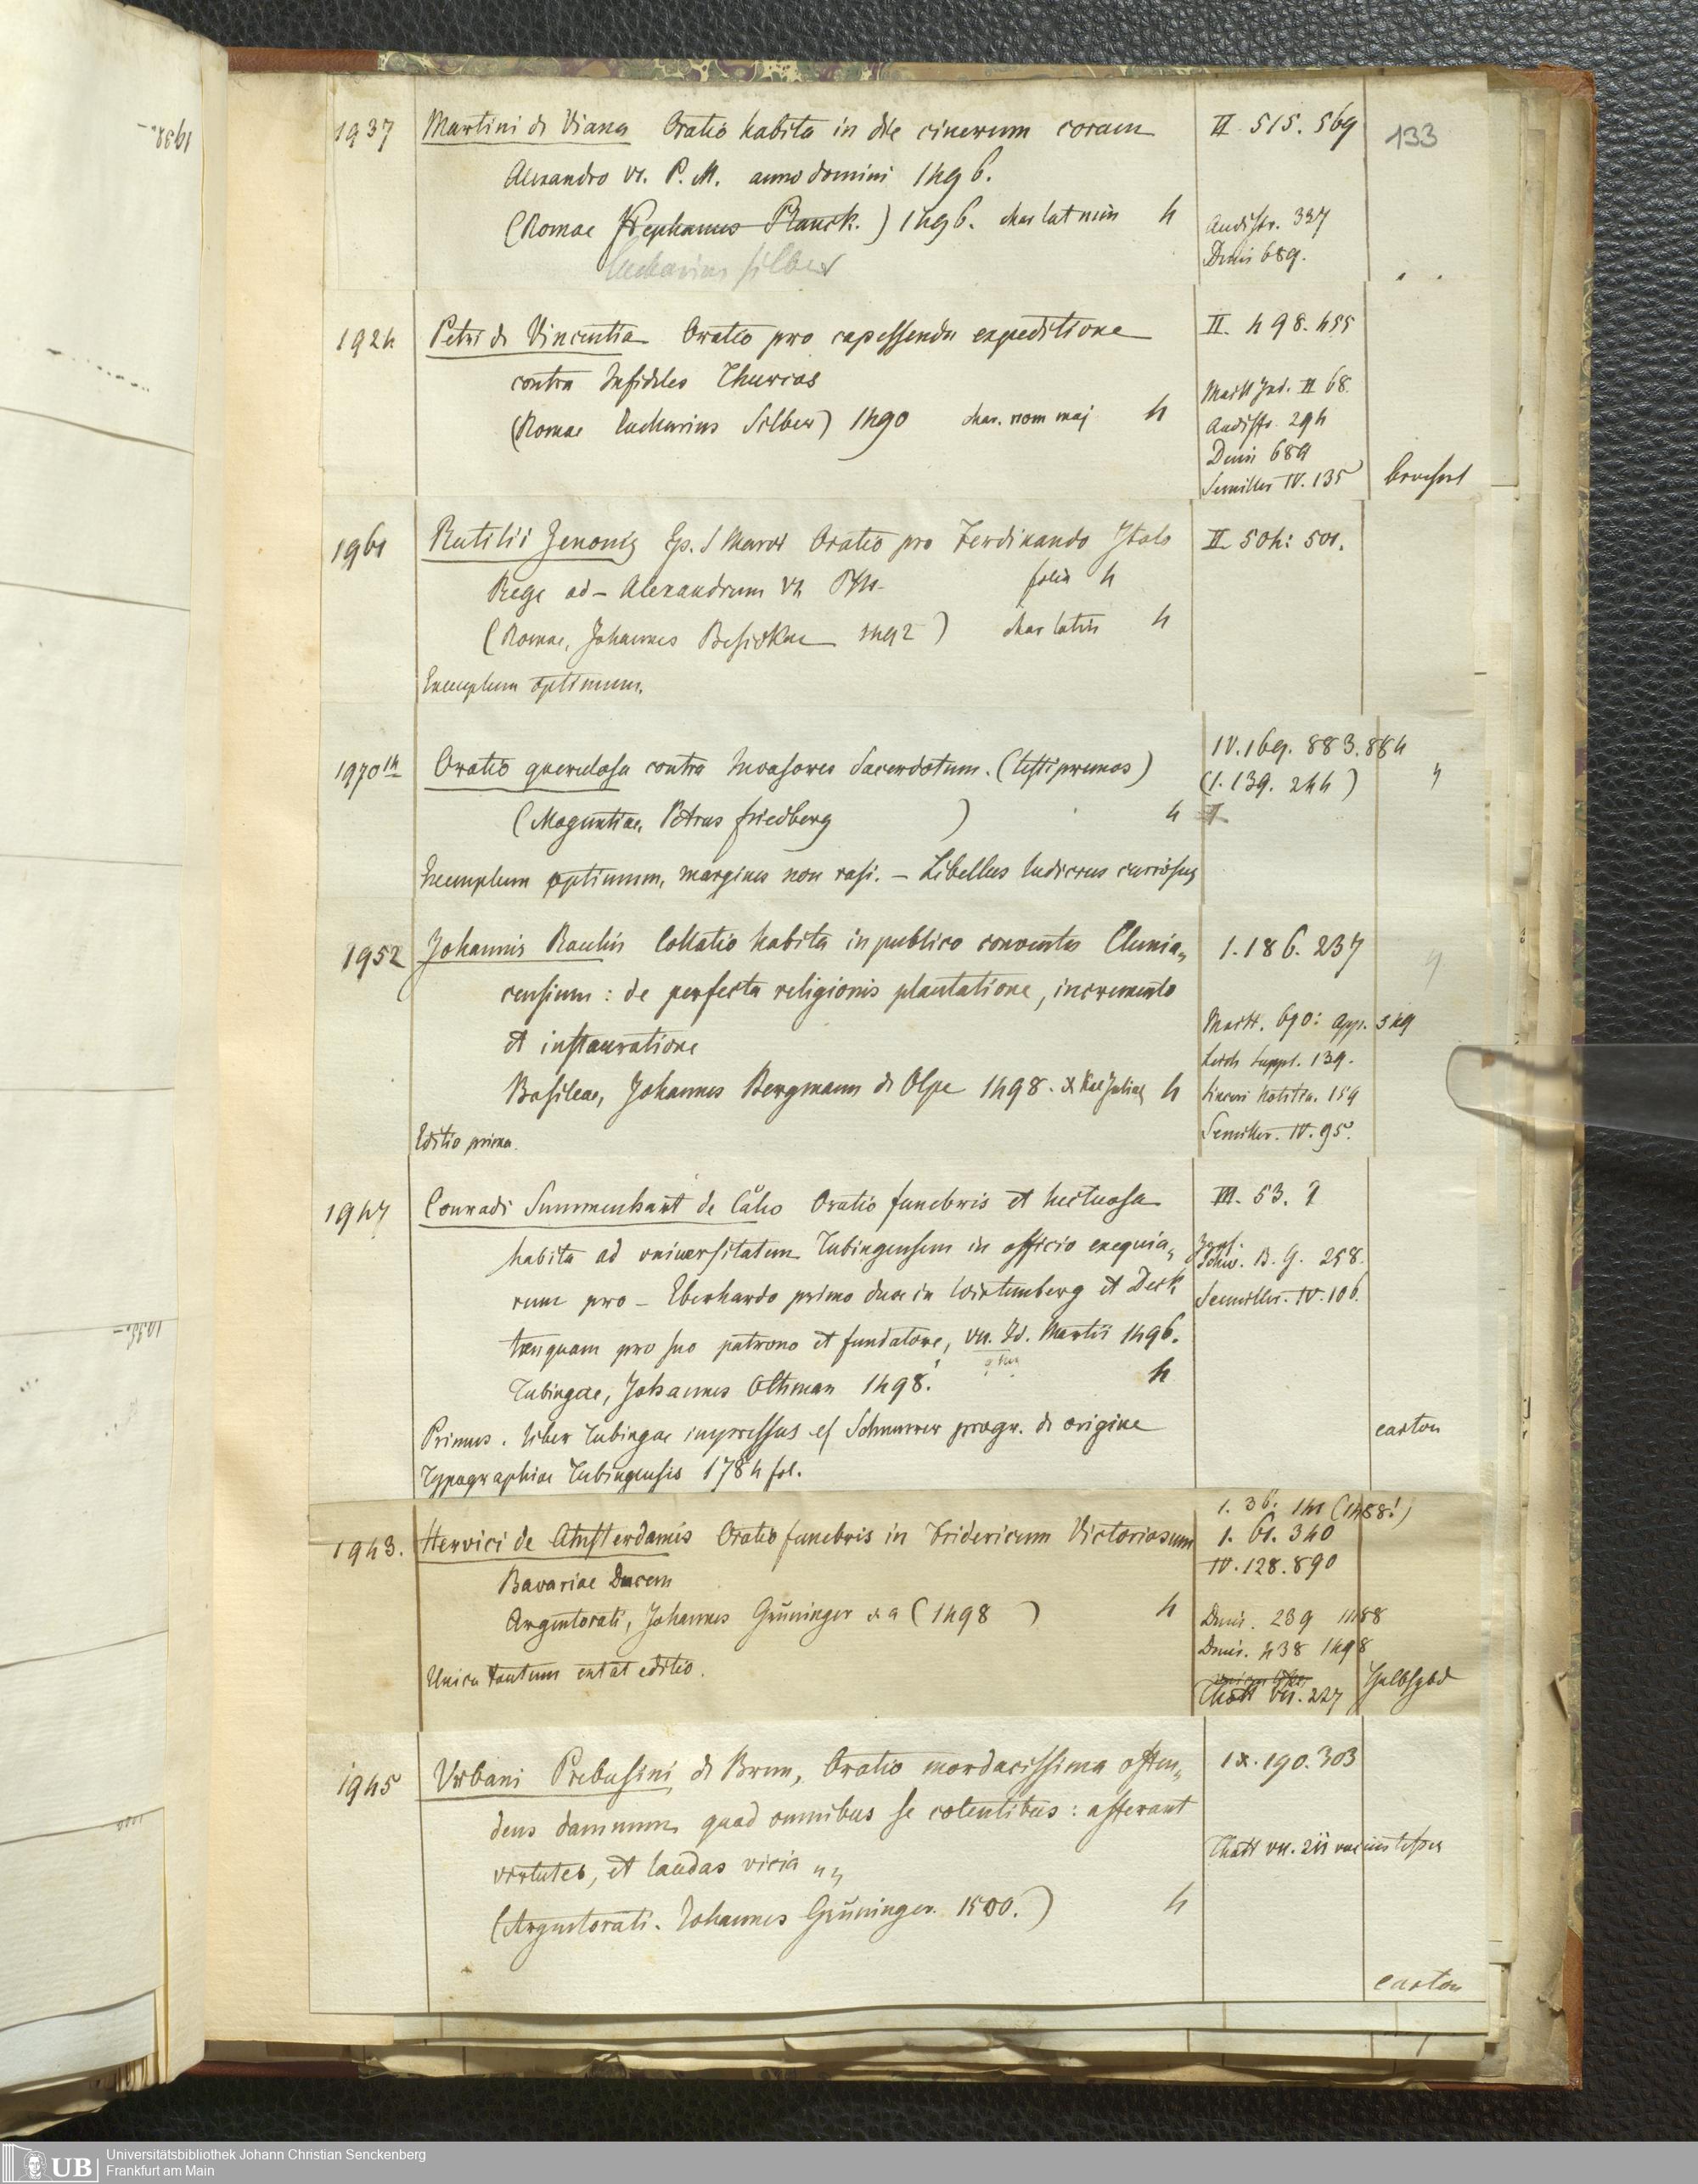 133
1937 Martini de Viana Oratio habita in die cinerum coram II 515. 569
Alexandro VI. P. M. anno domini 1496.
(Romae Stephanus Planck.) 1496. char lat min 4 Audiffr. 327
Eucharius Silber Denis 689.
1924 Petri de Vincentia Oratio pro capessenda expeditione II. 498. 455
contra Infideles Thurcos Maitt Ind. II 68.
(Romae Eucharius Silber) 1490 char. rom maj 4 Audiffr. 294
Denis 684
Seemiller IV. 135 brochirt
1961 Rutilii Zenonis Ep. S Marci Oratio pro Ferdinando Italo II 504: 501.
Rege ad – Alexandrum VI folia 4
(Romae, Johannes Besicken 1492) char latin 4
Exemplum optimum.
1970 Oratio querulosa contra Invasores Sacerdotum. IV. 169. 883. 884
(Moguntiae, Petrus Friedberg ) 4 (I. 139. 244)
Exemplum optimum, margines non rasi. – Libellus ludicrus curiosus
1952 Johannis Raulin Collatio habita in publico conventu Clunia„ I. 186. 237
censium: de perfecta religionis plantatione, incremento
et instauratione Maitt. 690: App. 549
Basileae, Johannes Bergmann de Olpe 1498. Kal Julias 4 Leich Suppl. 139.
Editio prima. Seemiller. IV. 95.
1947 Conradi Summenhart de Calw Oratio funebris et luctuosa III. 53. 1
habita ad universitatem Tubingensem in officio exequia„ Zapf. B. G. 258.
rum pro – Eberhardo primo duce in Wirtemberg et Deck Seemiller. IV. 106.
tanquam pro suo patrono et fundatore, VII. Id. Martii 1496.
Tubingae, Johannes Othmar 1498. 4
Primus. liber Tubingae impressus cf Schnurrer progr. de origine carton
Typographiae Tubingensis 1784 fol.
I. 36: 141 (1488!)
1943. Henrici de Amsterdamis Oratio funebris in Fridericum Victoriosum I. 61. 340
Bavariae Ducem IV. 128. 890
Argentorati, Johannes Grüninger s a (1498 ) 4 Denis. 239 1488
Denis. 438 1498
Unica tantum extat editio. Thott VII. 227 Halbfzbd
1945 Urbani Prebusini de Brun, Oratio mordacissima osten„ IX. 190. 303
dens damnum quod omnibus se colentibus: afferant
virtutes, et laudas vicia Thott VII. 211
(Argentorati. Johannes Grüninger. 1500.) 4
carton
UB Universitätsbibliothek Johann Christian Senckenberg
Frankfurt am Main